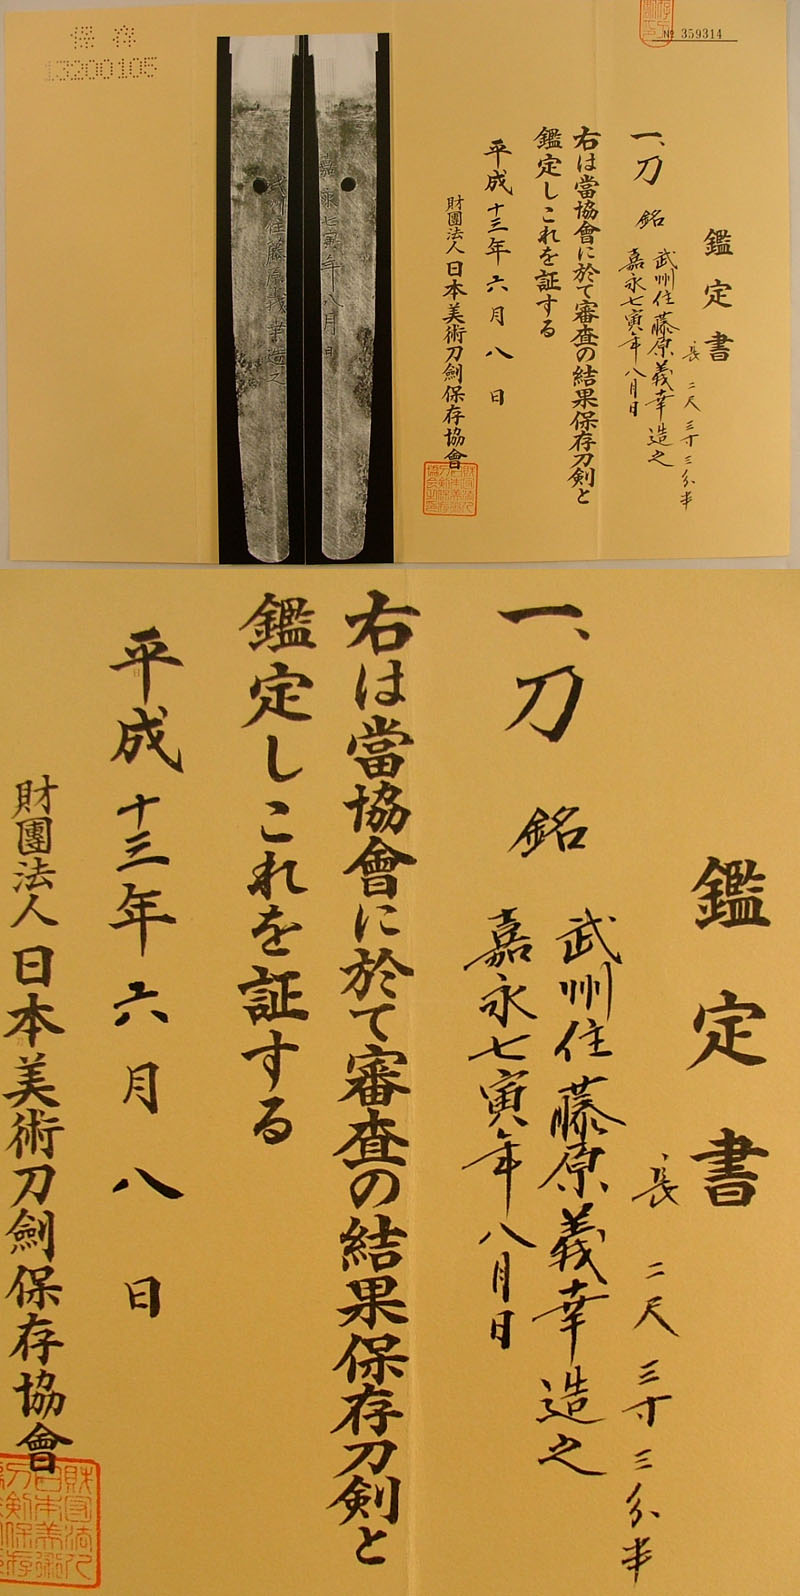 保存
13200105
武州住藤原義幸造之
嘉永七寅年八月日
№ 359314
鑑定書
長 二尺三寸三分半
一、刀 銘 武州住藤原義幸造之
嘉永七寅年八月日
右は當協會に於て審査の結果保存刀剣と
鑑定しこれを証する
平成十三年六月八日
財團法人日本美術刀劍保存協會
鑑定書
長 二尺三寸三分半
一、刀 銘 武州住藤原義幸造之
嘉永七寅年八月日
右は當協會に於て審査の結果保存刀剣と
鑑定しこれを証する
平成十三年六月八日
財團法人日本美術刀劍保存協會